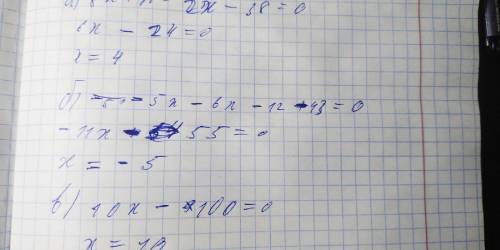 - 2x - 38 = 0
6x - 24 = 0
x = 4
б) - 5x - 6x - 12 - 43 = 0
- 11x - 55 = 0
x = - 5
в) 10x - 100 = 0
x = 10